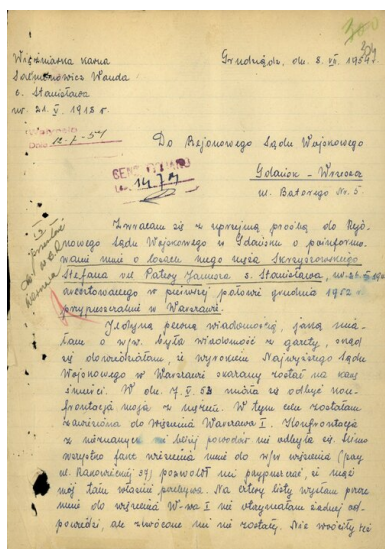 Więźniarka karna
Wanda
c. Stanisława
ur. 21. V. 1918 r.
Grudziądz, dn. 8. VII. 1954 r.
Do Rejonowego Sądu Wojskowego
Gdańsk - Wrzeszcz
ul. Batorego Nr. 5
Zwracam się z uprzejmą prośbą do Rejo-
nowego Sądu Wojskowego w Gdańsku o poinformo-
wanie mnie o losach mego męża Skrzyszowskiego
Stefana vel Patery Janusza s. Stanisława, ur.
aresztowanego w pierwszej połowie grudnia 1952 r.
przypuszczalnie w Warszawie.
Jedyną pewną wiadomością, jaką mia-
łam o w/w. była wiadomość z gazety, skąd
się dowiedziałam, iż wyrokiem Najwyższego Sądu
Wojskowego w Warszawie skazany został na karę
śmierci. W dn. 7. V. 53 miała się odbyć kon-
frontacja moja z mężem. W tym celu zostałam
zawieziona do więzienia Warszawa I. Konfrontacja
z nieznanych mi bliżej powodów nie odbyła się. Mimo
wszystko fakt wiezienia mnie do w/w więzienia (przy
ul. Rakowieckiej 37) pozwolił mi przypuszczać, iż mąż
mój tam właśnie przebywa. Na cztery listy wysłane przeze
mnie do więzienia W-wa I nie otrzymałam żadnej od-
powiedzi, ale zwrócone mi nie zostały. Nie wróciły też